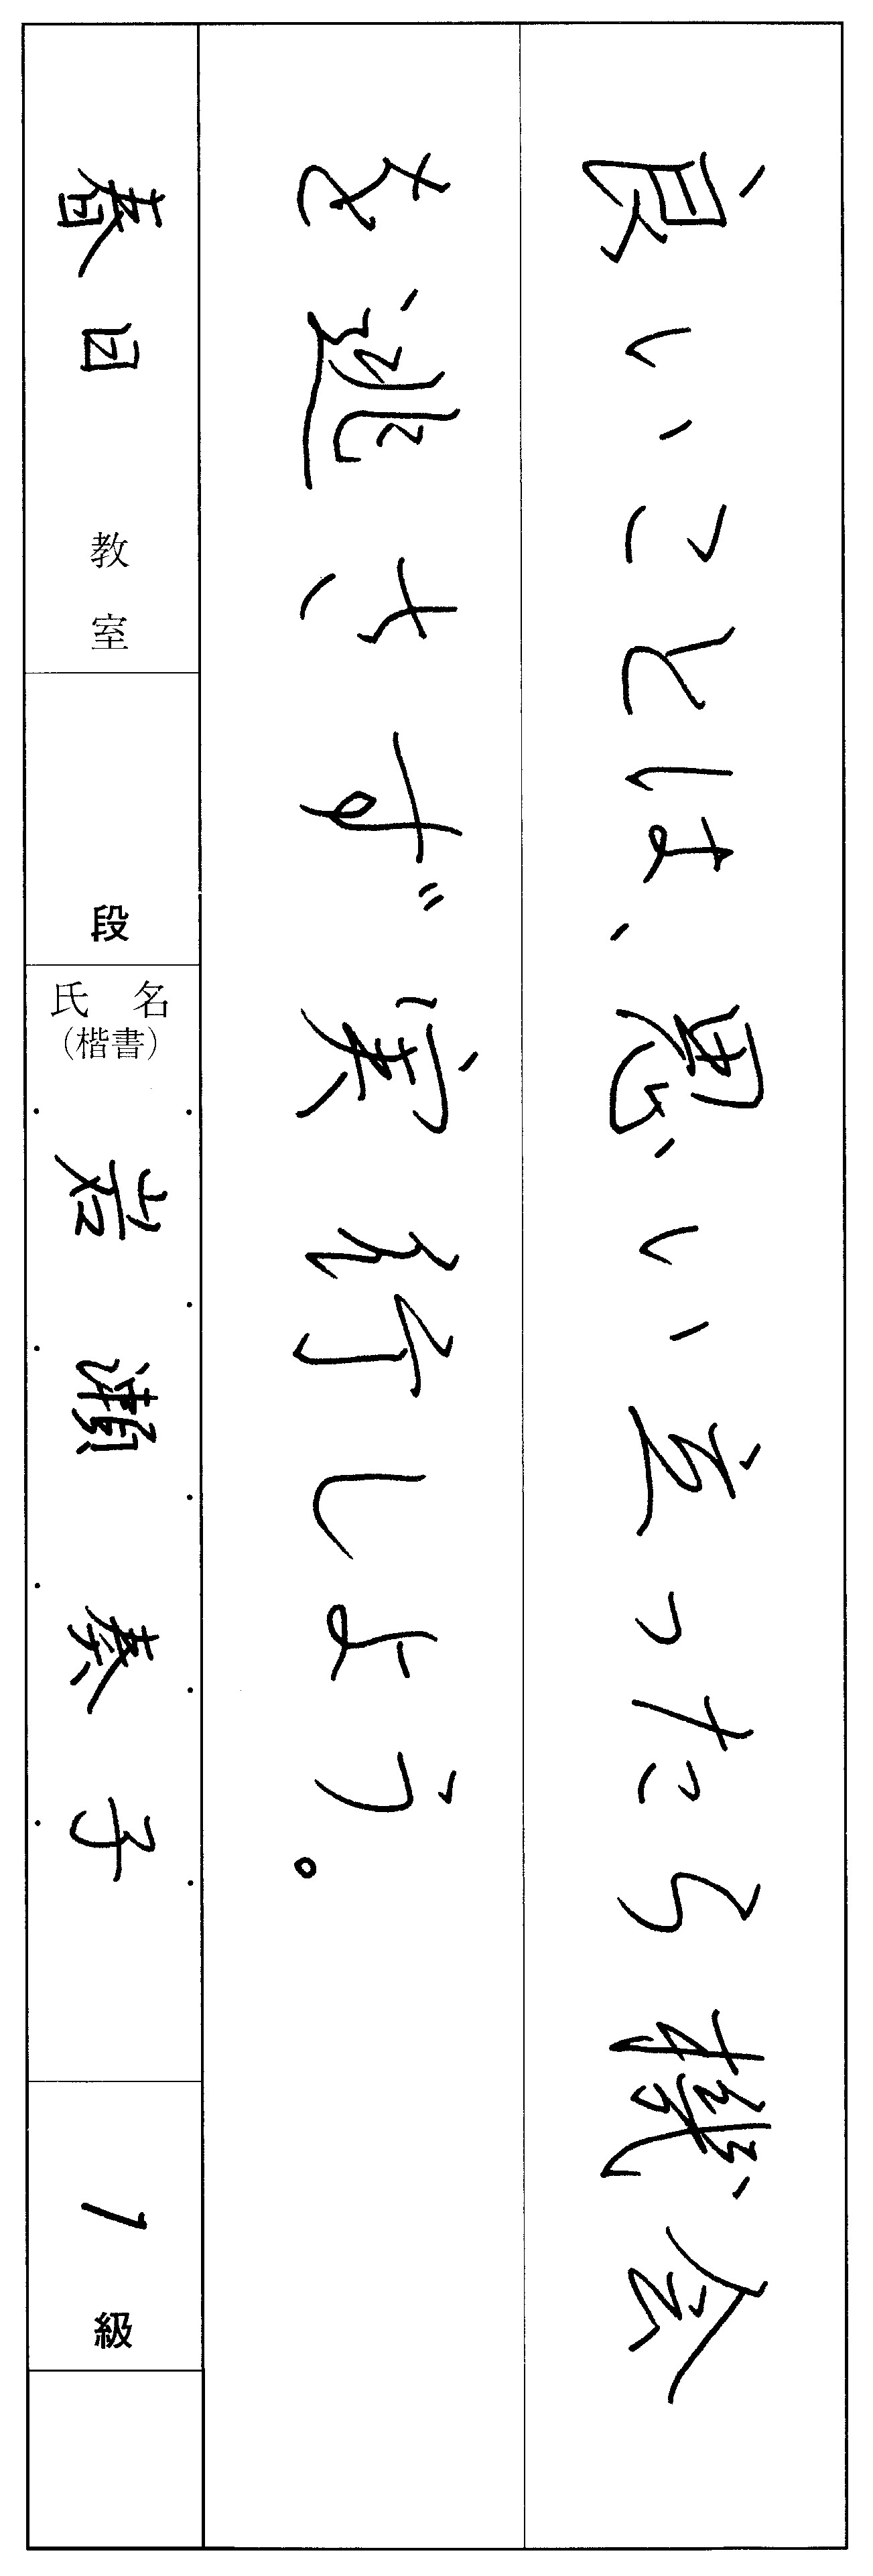 良いことは、思い立ったら機会
を逃さず実行しよう。
春日教室
段
氏名
(楷書)
岩瀬奏子
1級